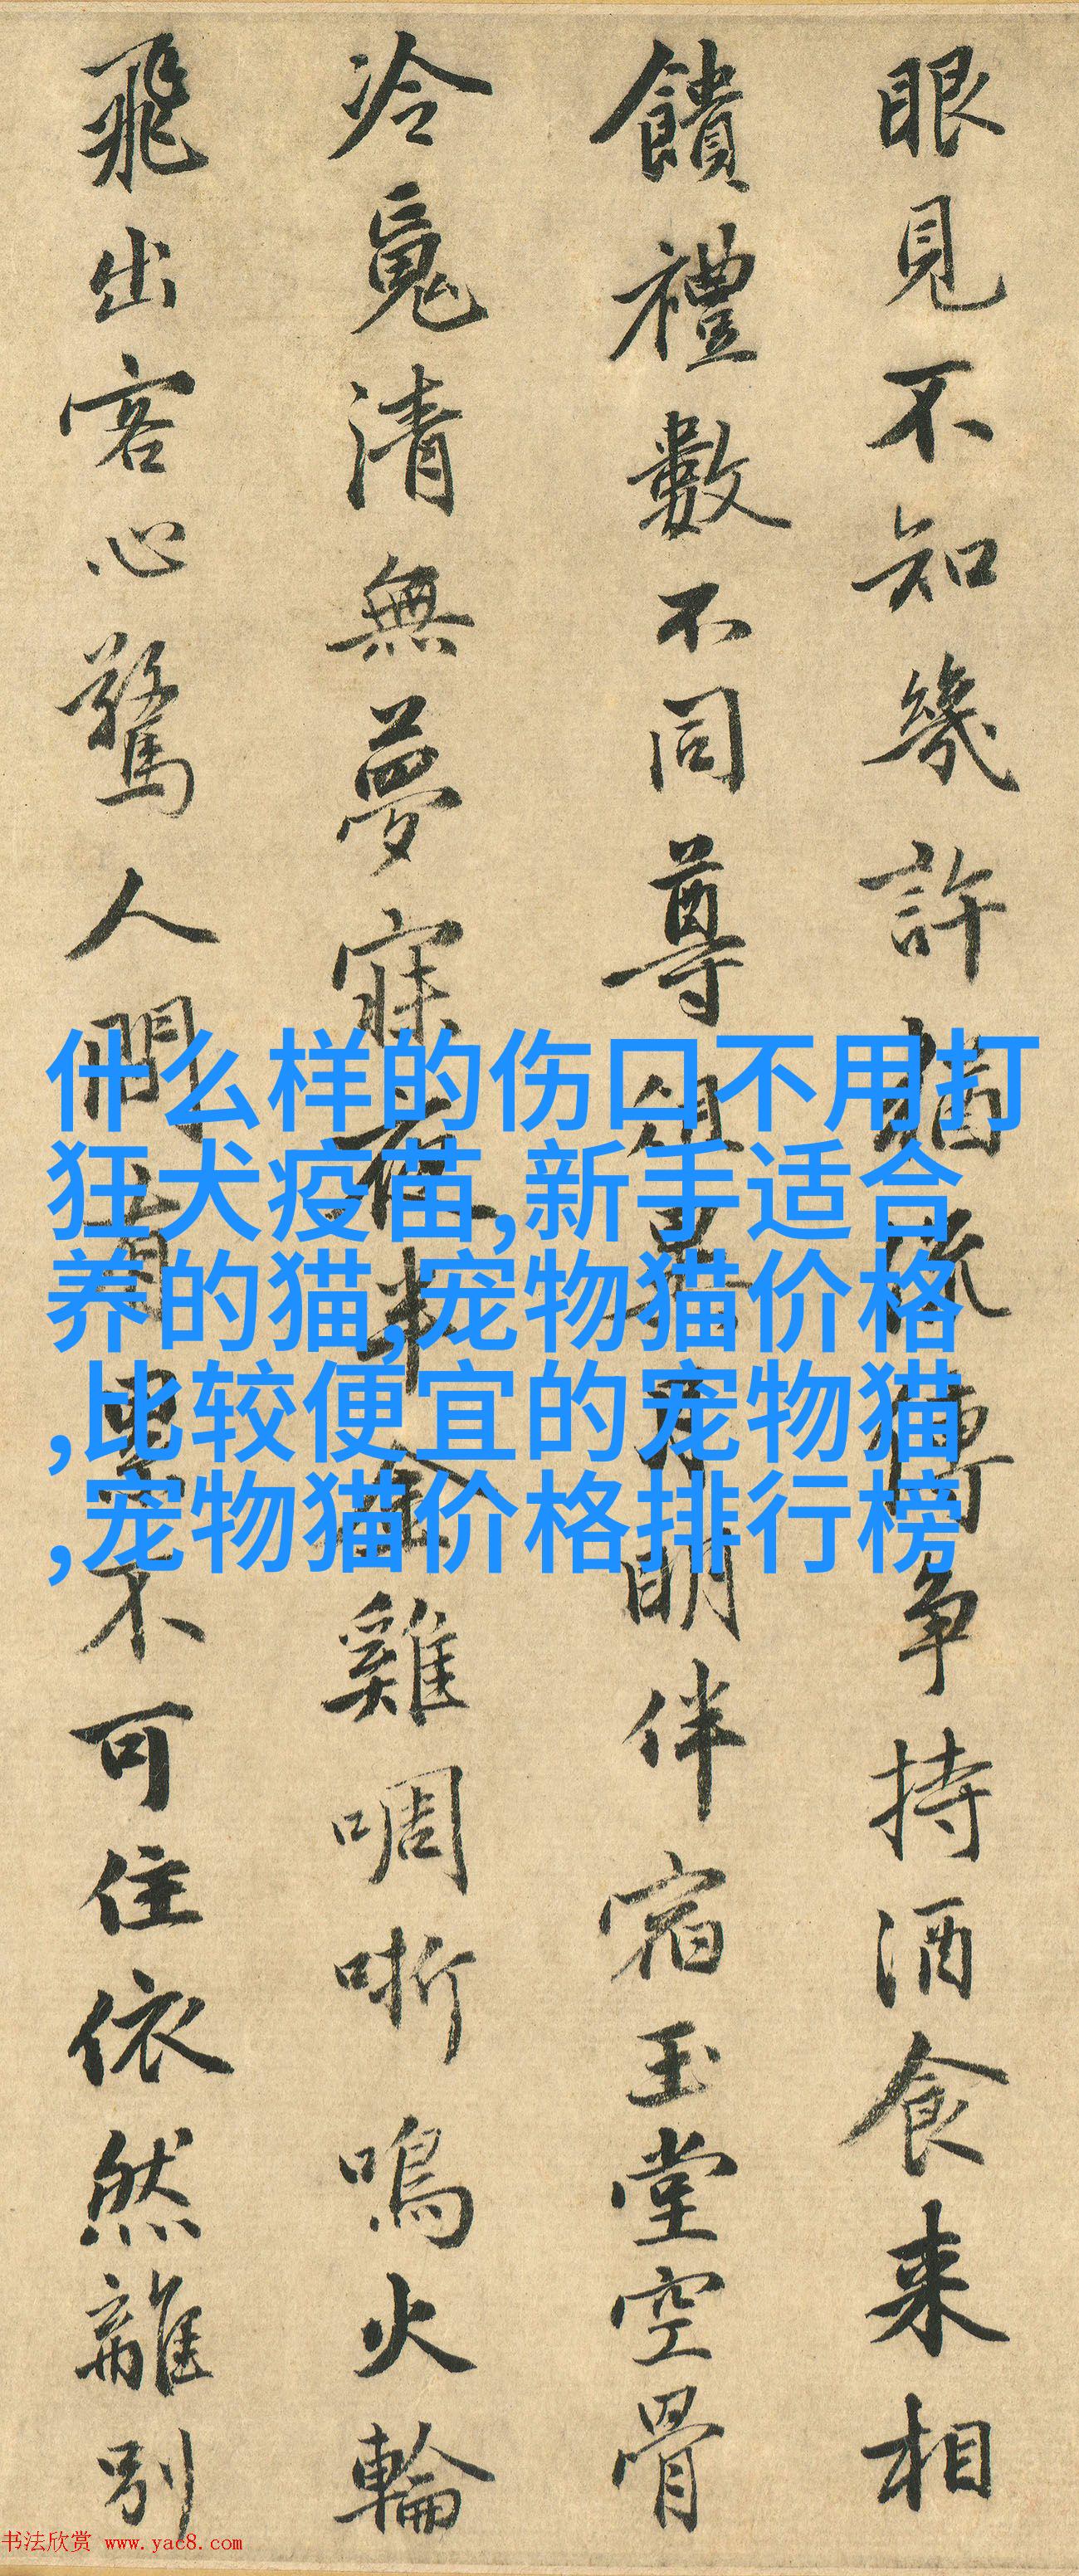 眼見不知幾許猶流傳争持酒食来相
饋禮數不同尊俎異月明伴宿玉堂空骨
冷魂清無夢寐夜半金雞啁哳鳴火輪
飛出客心驚人間有累不可住依然離別
什么样的伤口不用打
狂犬疫苗,新手适合
养的猫,宠物猫价格
,比较便宜的宠物猫
,宠物猫价格排行榜
书法欣赏 www.yac8.com